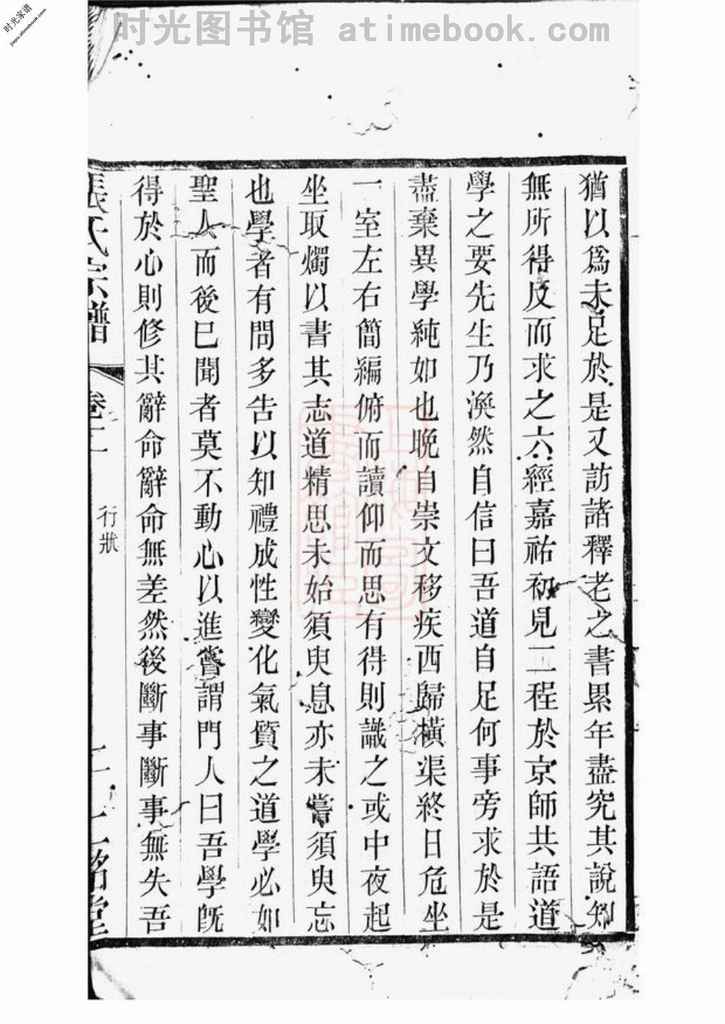 时光图书馆 atimebook.com
时光家谱
猶以爲未足於是又訪諸釋老之書累年盡究其說知
無所得反而求之六經嘉祐初見二程於京師共語道
學之要先生乃渙然自信曰吾道自足何事旁求於是
盡棄異學純如也晚自崇文移疾西歸橫渠終日危坐
一室左右簡編俯而讀仰而思有得則識之或中夜起
坐取燭以書其志道精思未始須臾息亦未嘗須臾忘
也學者有問多告以知禮成性變化氣質之道學必如
聖人而後已聞者莫不動心以進嘗謂門人曰吾學旣
得於心則修其辭命辭命無差然後斷事斷事無失吾
張氏宗譜
卷二
行狀
二
銘堂